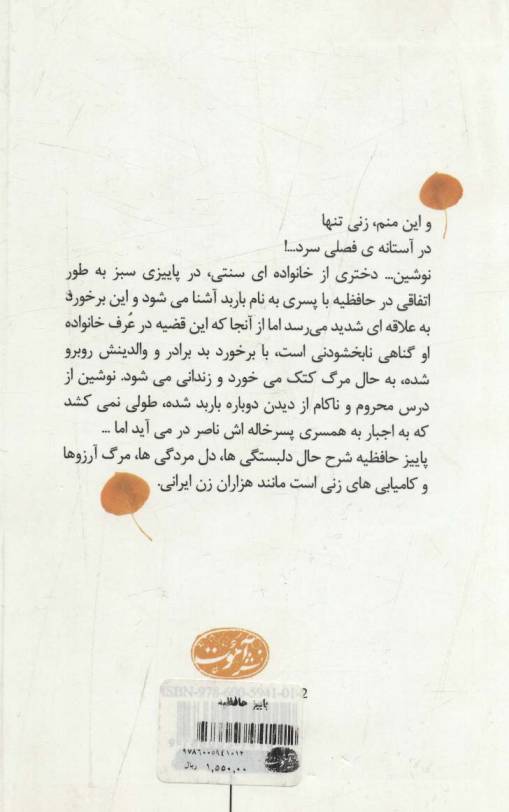 و این منم، زنی تنها
در آستانه ی فصلی سرد...!
نوشین... دختری از خانواده ای سنتی، در پاییزی سبز به طور
اتفاقی در حافظیه با پسری به نام باربد آشنا می شود و این برخورد
به علاقه ای شدید می‌رسد اما از آنجا که این قضیه در عُرف خانواده
او گناهی نابخشودنی است، با برخورد بد برادر و والدینش روبرو
شده، به حال مرگ کتک می خورد و زندانی می شود. نوشین از
درس محروم و ناکام از دیدن دوباره باربد شده، طولی نمی کشد
که به اجبار به همسری پسرخاله اش ناصر در می آید اما ...
پاییز حافظیه شرح حال دلبستگی ها، دل مردگی ها، مرگ آرزوها
و کامیابی های زنی است مانند هزاران زن ایرانی.
نشر آهوئت
ISBN-978-600-5941-01-2
پاییز حافظیه
۹۷۸۶۰۰۵۹۴۱۰۱۲
۱,۵۵۰,۰۰ ریال